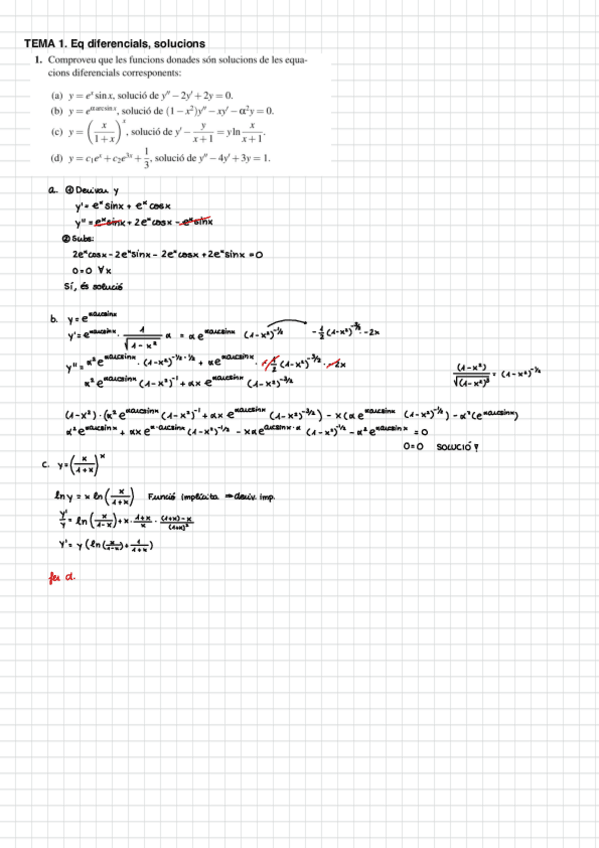 TEMA 1. Eq diferencials, solucions
1. Comproveu que les funcions donades són solucions de les equa-
cions diferencials corresponents:
(a) y = eˣ sin x, solució de y″ − 2y′ + 2y = 0.
(b) y = e^{α arcsin x}, solució de (1 − x²)y″ − xy′ − α²y = 0.
(c) y = (x/(1+x))^x, solució de y′ − y/(x+1) = y ln x/(x+1).
(d) y = c₁eˣ + c₂e³ˣ + 1/3, solució de y″ − 4y′ + 3y = 1.
a. ① Derivar y
y' = eˣ sinx + eˣ cosx
y" = eˣ sinx + 2eˣ cosx − eˣ sinx
② Subs:
2eˣ cosx − 2eˣ sinx − 2eˣ cosx + 2eˣ sinx = 0
0=0 ∀x
Sí, és solució
b. y = e^{αarcsinx}
y' = e^{αarcsinx} · 1/√(1−x²) α = α e^{αarcsinx} (1−x²)^{-1/2} −1/2 (1−x²)^{-3/2} · −2x
y" = α² e^{αarcsinx} · (1−x²)^{-1/2 - 1/2} + α e^{αarcsinx} · −1/2 (1−x²)^{-3/2} · −2x
α² e^{αarcsinx} (1−x²)^{-1} + αx e^{αarcsinx} (1−x²)^{-3/2} (1−x²)/√(1−x²)³ = (1−x²)^{-1/2}
(1−x²) · (α² e^{αarcsinx} (1−x²)^{-1} + αx e^{αarcsinx} (1−x²)^{-3/2}) − x(α e^{αarcsinx} (1−x²)^{-1/2}) − α²(e^{αarcsinx})
α² e^{αarcsinx} + αx e^{α·arcsinx} (1−x²)^{-1/2} − xα e^{arcsinx·α} (1−x²)^{-1/2} − α² e^{αarcsinx} = 0
0=0 SOLUCIÓ ?
c. y = (x/(1+x))^x
ln y = x ln(x/(1+x)) Funció implícita ⇒ deriv. imp.
y'/y = ln(x/(1−x)) + x · (1+x)/x · ((1+x)−x)/(1+x)²
y' = y (ln(x/(1−x)) + 1/(1+x))
fer d.